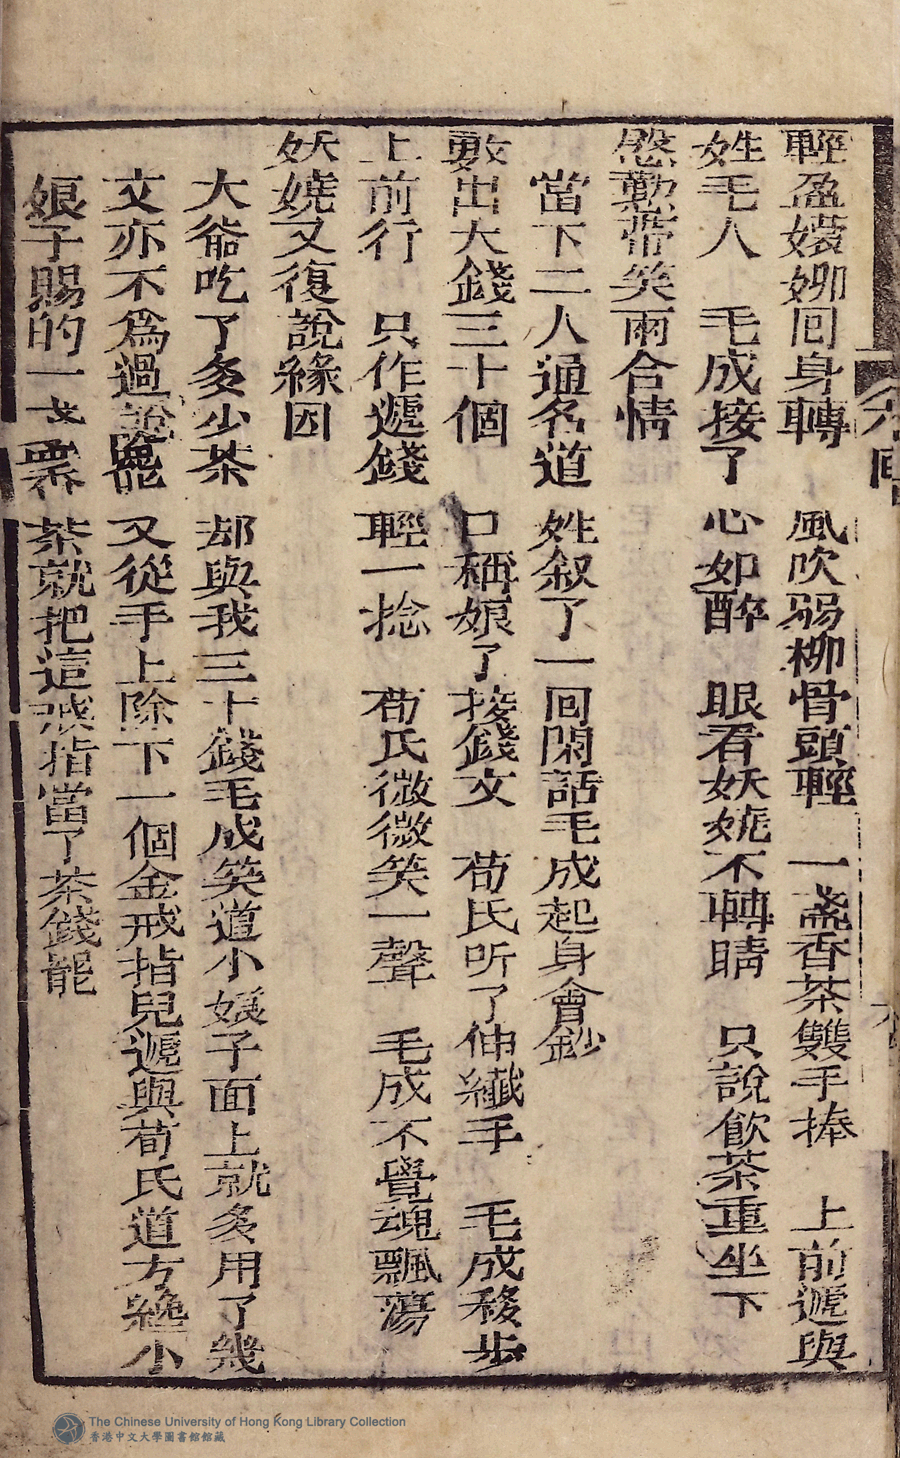 輕盈嬝娜回身轉　風吹弱柳骨頭輕　一盞香茶雙手捧　上前遞與
姓毛人　毛成接了心如醉　眼看妖嬈不轉睛　只說飲茶重坐下
慇懃帶笑兩合情
當下二人通名道姓叙了一回閑話毛成起身會鈔
數出大錢三十個　口稱娘了接錢文　荀氏听了伸纖手　毛成移步
上前行　只作遞錢輕一捻　荀氏微微笑一聲　毛成不覺魂飄蕩
妖嬈又復說緣因
大爺吃了多少茶　却與我三十錢毛成笑道小娘子面上就多用了幾
文亦不爲過說罷又從手上除下一個金戒指兒遞與荀氏道方纔小
娘子賜的一茶就把這戒指當了茶錢罷
The Chinese University of Hong Kong Library Collection
香港中文大學圖書館館藏